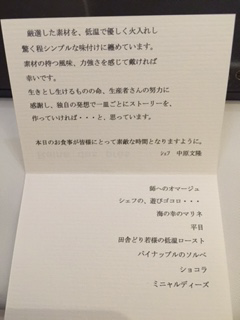 厳選した素材を、低温で優しく火入れし
驚く程シンプルな味付けに纏めています。
素材の持つ風味、力強さを感じて戴ければ
幸いです。
生きとし生けるものの命、生産者さんの努力に
感謝し、独自の発想で一皿ごとにストーリーを、
作っていければ・・・と、思っています。
本日のお食事が皆様にとって素敵な時間となりますように。
シェフ 中原文隆
師へのオマージュ
シェフの、遊びゴコロ・・・
海の幸のマリネ
平目
田舎どり若様の低温ロースト
パイナップルのソルベ
ショコラ
ミニャルディーズ